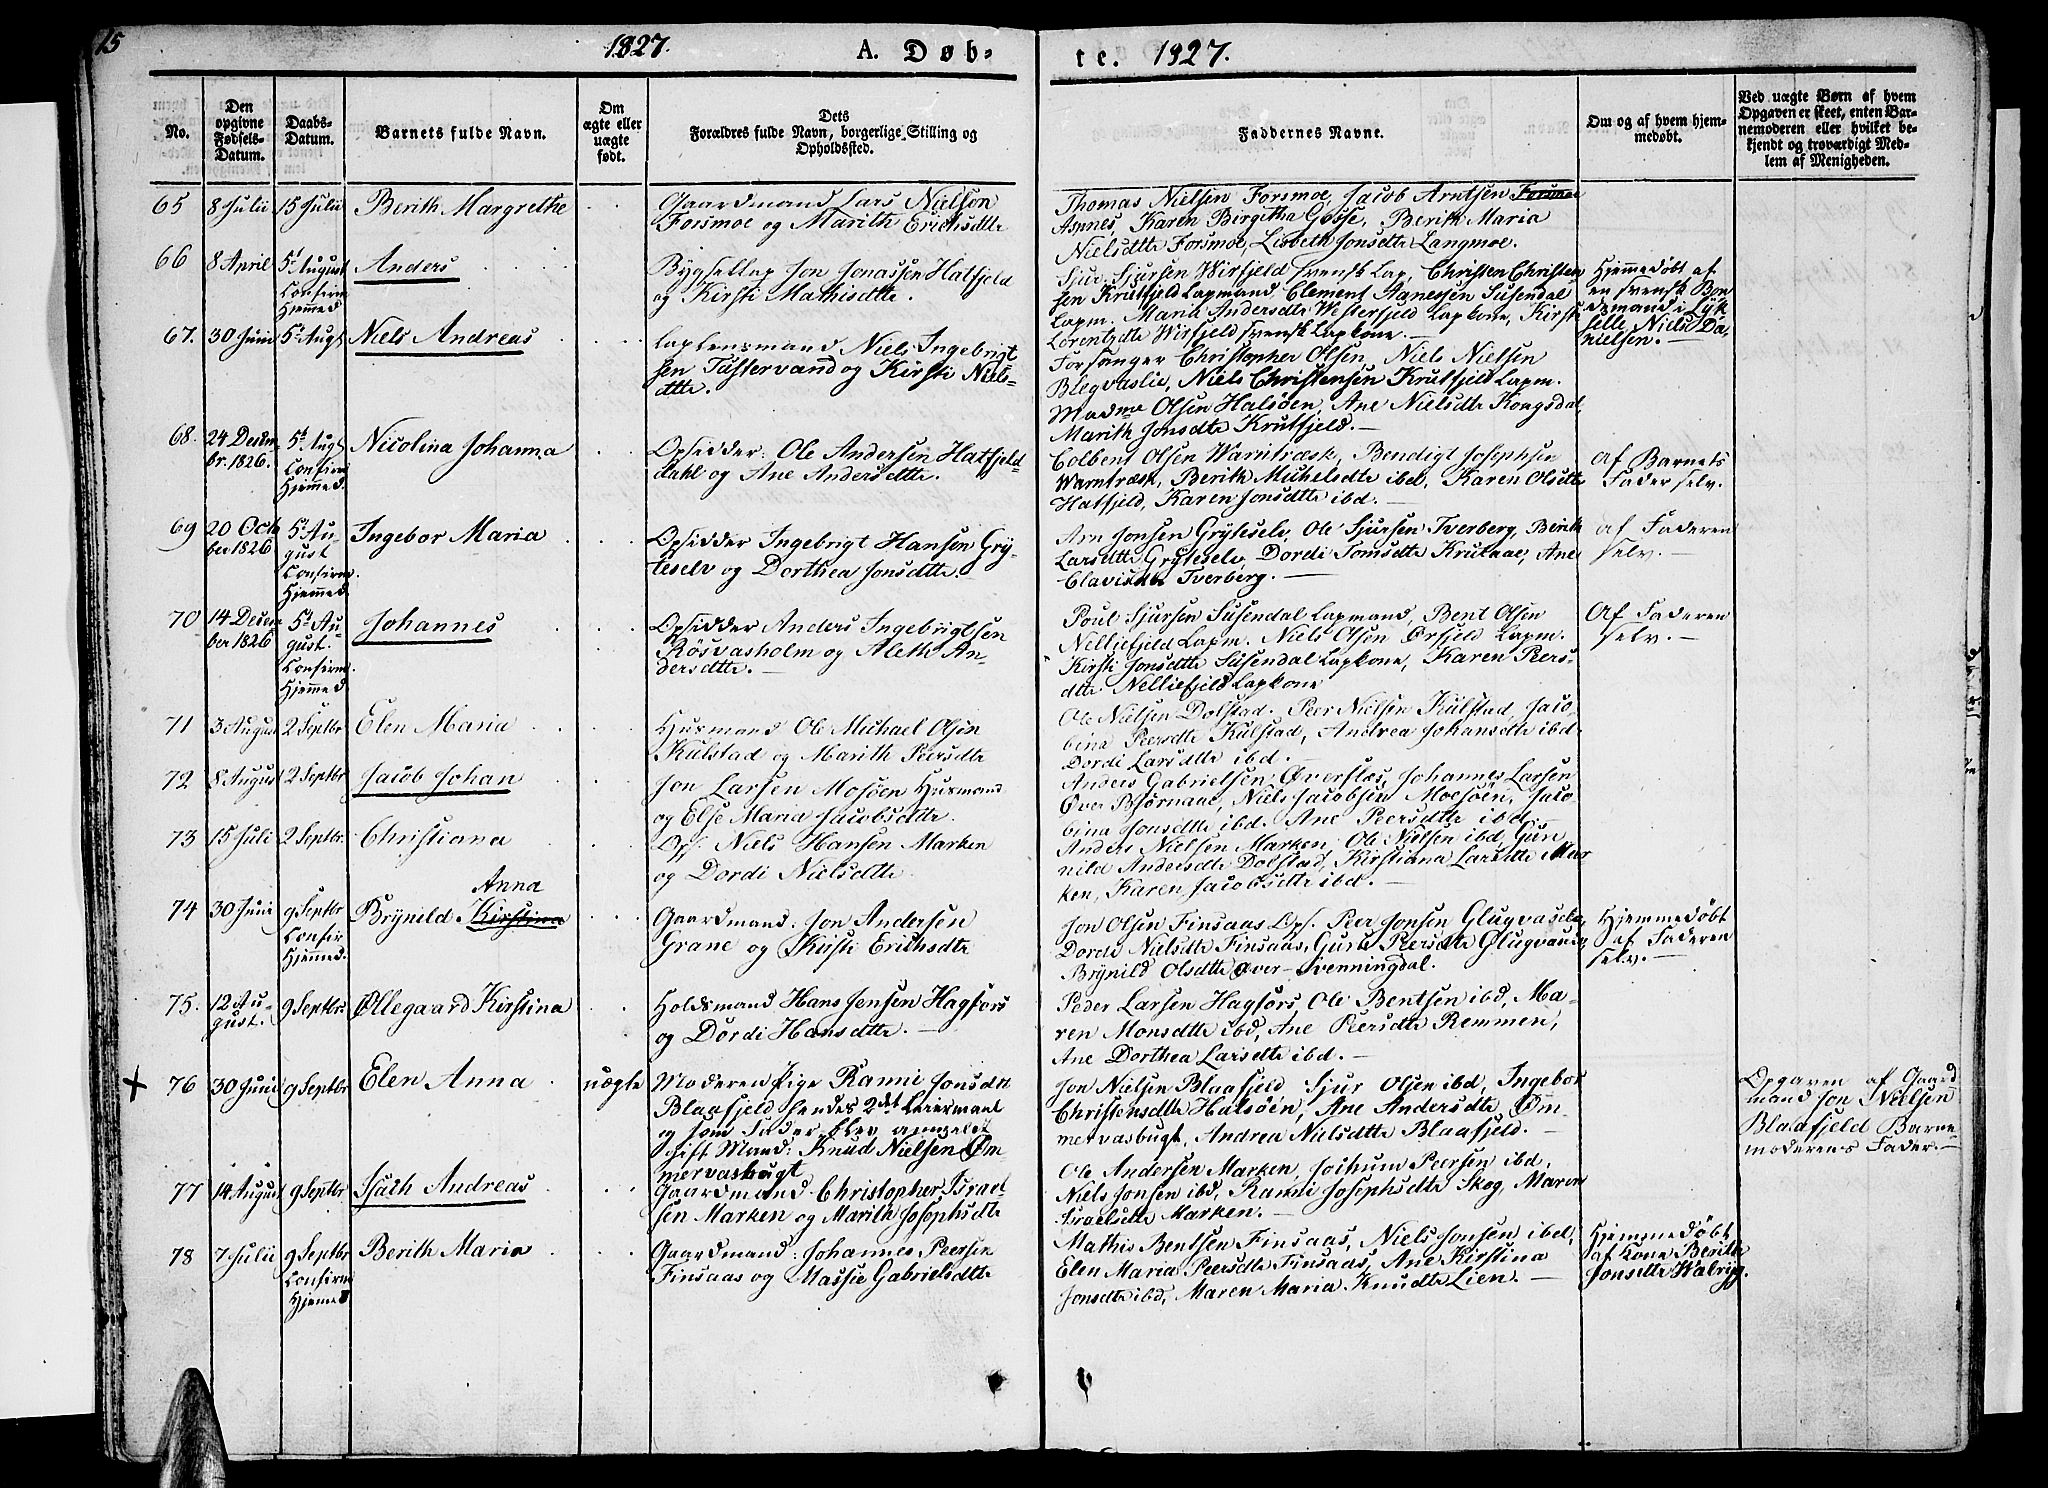 15
1827.
A. Døb-
te. 1827.
No.
Den opgivne Fødsels-Datum.
Daabs-Datum.
Barnets fulde Navn.
Om ægte eller uægte født.
Dets
Forældres fulde Navn, borgerlige Stilling og
Opholdssted.
Faddernes Navne.
Om og af hvem hjem-
medøbt.
Ved uægte Børn af hvem
Opgaven er skeet, enten Bar-
nemoderen eller hvilket be-
kjendt og troværdigt Med-
lem af Menigheden.
65 8 Julii 15 Julii Berith Margrethe
Gaardmand Lars Nielsen
Forsmoe og Marith Erichsdtr
Thomas Nielsen Forsmoe, Jacob Arntsen Forsmoe
Aspnes, Karen Birgitha Gosse, Berith Maria
Nielsdtte Forsmoe, Lisbeth Jonsdtte Langmoe.
66 8 April 5t August Confirm Hjemmed Anders
Bygsellap Jon Jonassen Hatfjeld
og Kirsti Mathisdtte.
Sjur Sjursen Wirfjeld svensk Lap, Christen Christen
sen Krutfjeld Lapmand, Clement Agnessen Susendal
Lapm. Maria Andersdtr Westerfjeld Lapkone, Kirsti
Lorentzdtr Wirfjeld svensk Lapkone.
Hjemmedøbt af
en svensk Bon
desmand i Lyk
selle, Niels Da-
nielsen.
67. 30 Juni 5t Augt Niels Andreas
Laplensmand Niels Ingebrigt
sen Tustervand og Kirsti Niels-
dtte.
Forsanger Christopher Olsen, Niels Nielsen
Blegvaslie, Niels Christensen Krutfjeld Lapm.
Madme Olsen Halsøen, Ane Nielsdtte Kongsdal,
Marith Jonsdtte Krutfjeld.
68. 24 Decem br. 1826. 5t Augt Confirm Hjemmed. Nicolina Johanna
Opsidder Ole Andersen Hatfjeld
dahl og Ane Andersdtte.
Colbent Olsen Warntræsk, Bendigt Josephsen
Warntræsk, Berith Michelsdtte ibd, Karen Olsdtte
Hatfjeld, Karen Jonsdtte ibd.
Af Barnets
Fader selv.
69 20 Octo ber 1826 5t Au- gust Confirm. Hjemmed. Ingebor Maria
Opsidder Ingebrigt Hansen Gry-
teselv og Dorthea Jonsdtte.
Arn Jonsen Gryteselv, Ole Sjursen Tverberg, Berith
Larsdtte Gryteselv, Dordi Tomsdtte Krutaae, Ane
Clavisdtte Tverberg.
af Faderen
selv.
70 14 Decem ber 1826 5t Au- gust. Confirm. Hjemmed Johannes
Opsidder Anders Ingebrigtsen
Røsvasholm og Aleth An-
dersdtte.
Poul Sjursen Susendal Lapmand, Bent Olsen
Nelliefjeld Lapm. Niels Olsen Ørfjeld Lapm.
Kirsti Jonsdtte Susendal Lapkone, Karen Peers-
dtte Nelliefjeld Lapkone
Af Faderen
selv.
71 3 August 2 Septbr Elen Maria
Husmand Ole Michael Olsen
Kulstad og Marith Peersdtte
Ole Nielsen Dolstad, Peer Nielsen Kulstad, Jaco-
bina Peersdtte Kulstad, Andrea Johansdtte ibd
Dordi Larsdtte ibd.
72 8 August 2 Septbr Jacob Johan
Jon Larsen Mosøen Husmand
og Else Maria Jacobsdtte.
Anders Gabrielsen Øverfles, Johannes Larsen
Over Bjørnaae, Niels Jacobsen Moesøen, Jaco-
bina Jonsdtte ibd. Ane Peersdtte ibd.
73 15 Juli 2 Septbr. Christiana
Ops. Niels Hansen Marken
og Dordi Nielsdtte.
Anders Nielsen Marken, Ole Nielsen ibd, Gun-
nild Andersdtte Dolstad, Kirstiana Larsdtte Mar
ken, Karen Jacobsdtte ibd.
74 30 Juni 9 Septbr Confir Hjemmed. Brynild Kirstina Anna
Gaardmand Jon Andersen
Grane og Kirsti Erichsdtte
Jon Olsen Finsaas Ops. Peer Jonsen Glugvaselv,
Dordi Nielsdtte Finsaas, Guru Peersdtte Glugvasel,
Brynild Olsdtte Over-Svenningdal.
Hjemmedøbt
af Faderen
selv.
75. 12 Au- gust. 9 Septbr. Øllegaard Kirstina
Holdsmand Hans Jensen Hagfors
og Dordi Hansdtte.
Peder Larsen Hagfors, Ole Bentsen ibd, Ma-
ren Monsdtte ibd, Ane Peersdtte Remmen,
Ane Dorthea Larsdtte ibd.
76 30 Juni 9 Septbr Elen Anna uægte
Moderen Pige Ranni Jonsdtt
Blaafjeld hendes 2det Leiermaal
og som Fader blev angivet
gift Mand: Knud Nielsen Øm-
mervasbugt
Jon Nielsen Blaafjeld, Sjur Olsen ibd, Ingebor
Christensdtte Halsøen, Ane Andersdtte Øm-
mervasbugt, Andrea Nielsdtte Blaafjeld.
Opgaven af Gaard
mand Jon Nielsen
Blaafjeld Barne
moderens Fader.
77 14 August 9 Septbr Isach Andreas
Gaardmand Christopher Israel-
sen Marken og Marith Josephsdtte
Ole Andersen Marken, Jochum Peersen ibd,
Niels Jonsen ibd, Ranni Josephsdtte Skog, Maren
Israelsdtte Marken.
78 7 Julii 9 Septbr Confirm Hjemmed Berith Maria
Gaardmand Johannes Peersen
Finsaas og Massie Gabrielsdtte
Mathis Bentsen Finsaas, Niels Jonsen ibd,
Elen Maria Peersdtte Finsaas, Ane Kirstina
Jonsdtte ibd, Maren Maria Knudtte Lien.
Hjemmedøbt
af Kone Berith
Jonsdtte Walrygg.